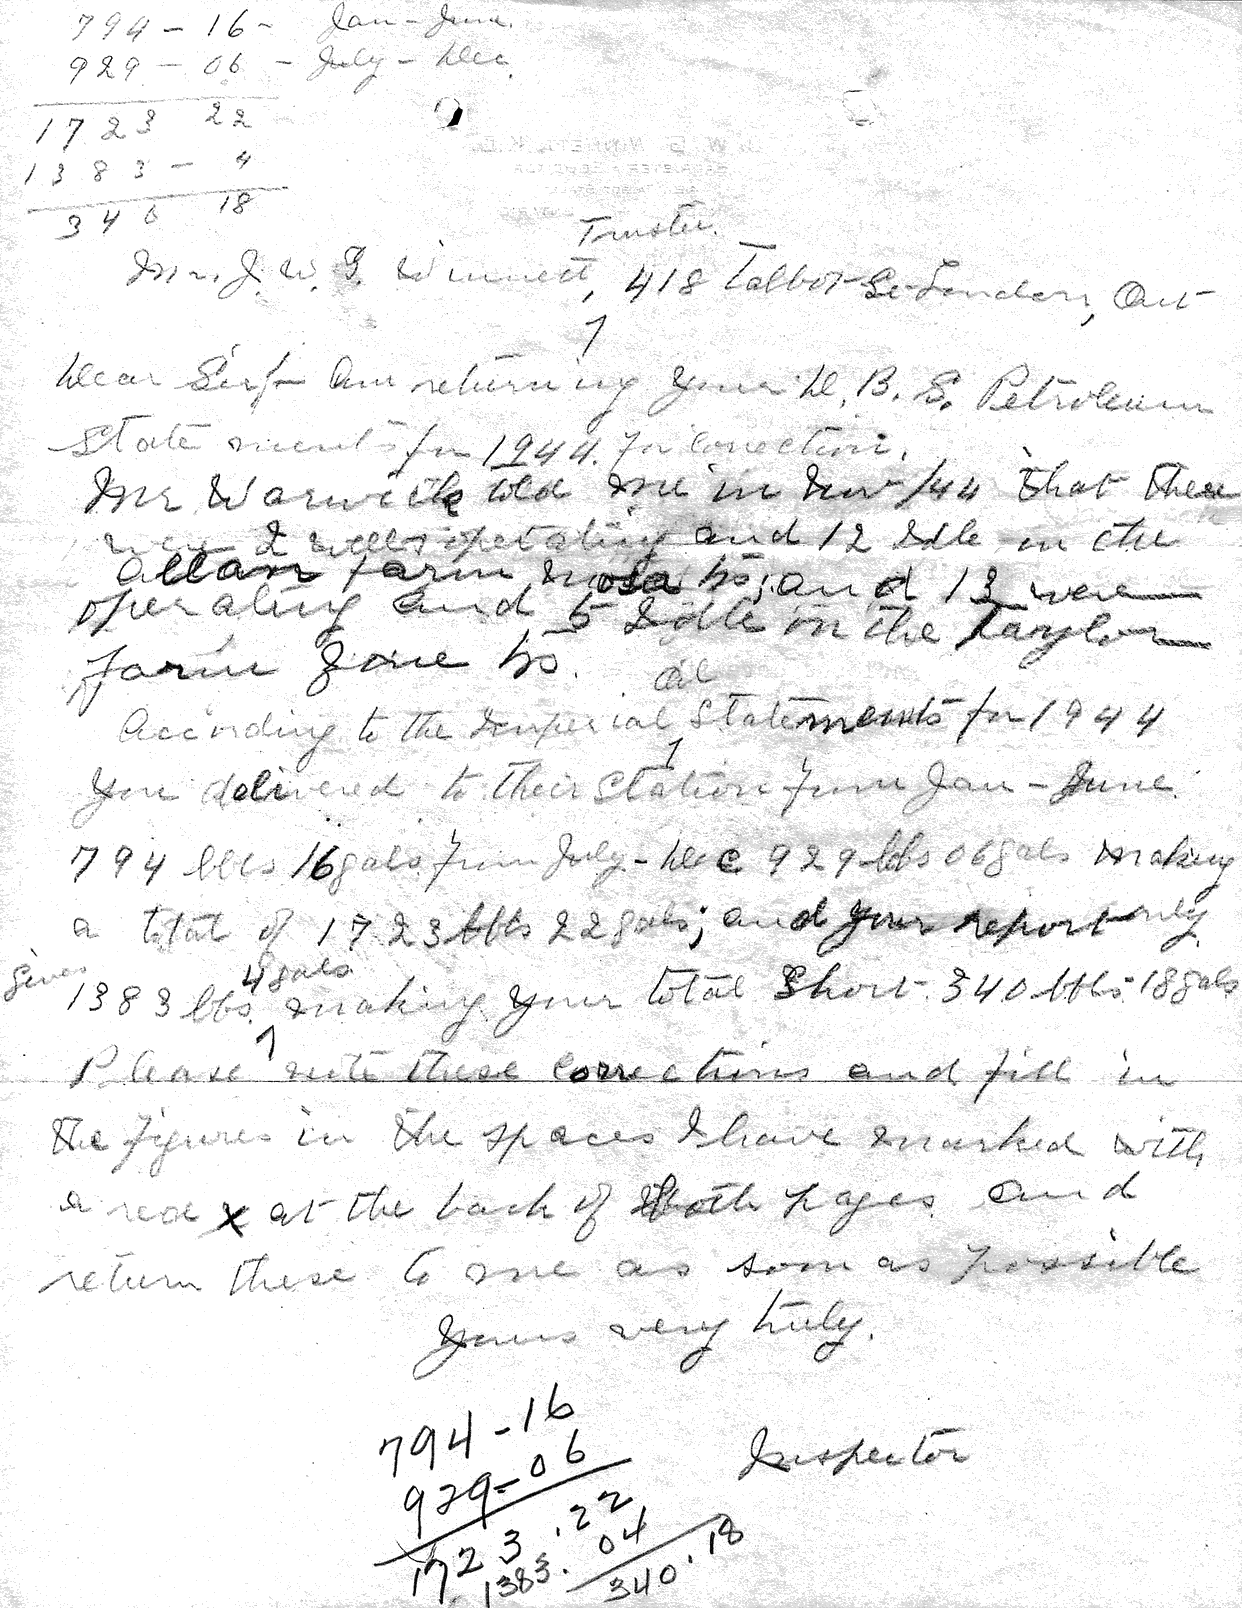 794 - 16 - Jan - June.
929 - 06 - July - Dec.
1723 22
1383 - 4
340 18
Trustee.
Mr. J. W. G. Winnett, 418 Talbot St London, Ont
Dear Sir/- Am returning your D. B. S. Petroleum
Statements for 1944. for correction.
Mr Warwick told me in Nov/44 that there
were 2 wells operating and 12 Idle in the
allan farm and 13 were
operating and 5 Idle in the Taylor
farm
According to the Imperial Oil Statements for 1944
you delivered to their Station from Jan - June.
794 bbls 16 gals. from July - Dec 929 bbls 06 gals making
a total of 1723 bbls 22 gals; and your report only
gives 1383 bbs. 4 gals. making your total Short 340 bbls 18 gals
Please note these corrections and fill in
the figures in the spaces I have marked with
a red x at the back of Both pages and
return these to me as soon as possible
Yours very truly.
Inspector
794 - 16
929 - 06
1723 . 22
1383 . 04
340 . 18